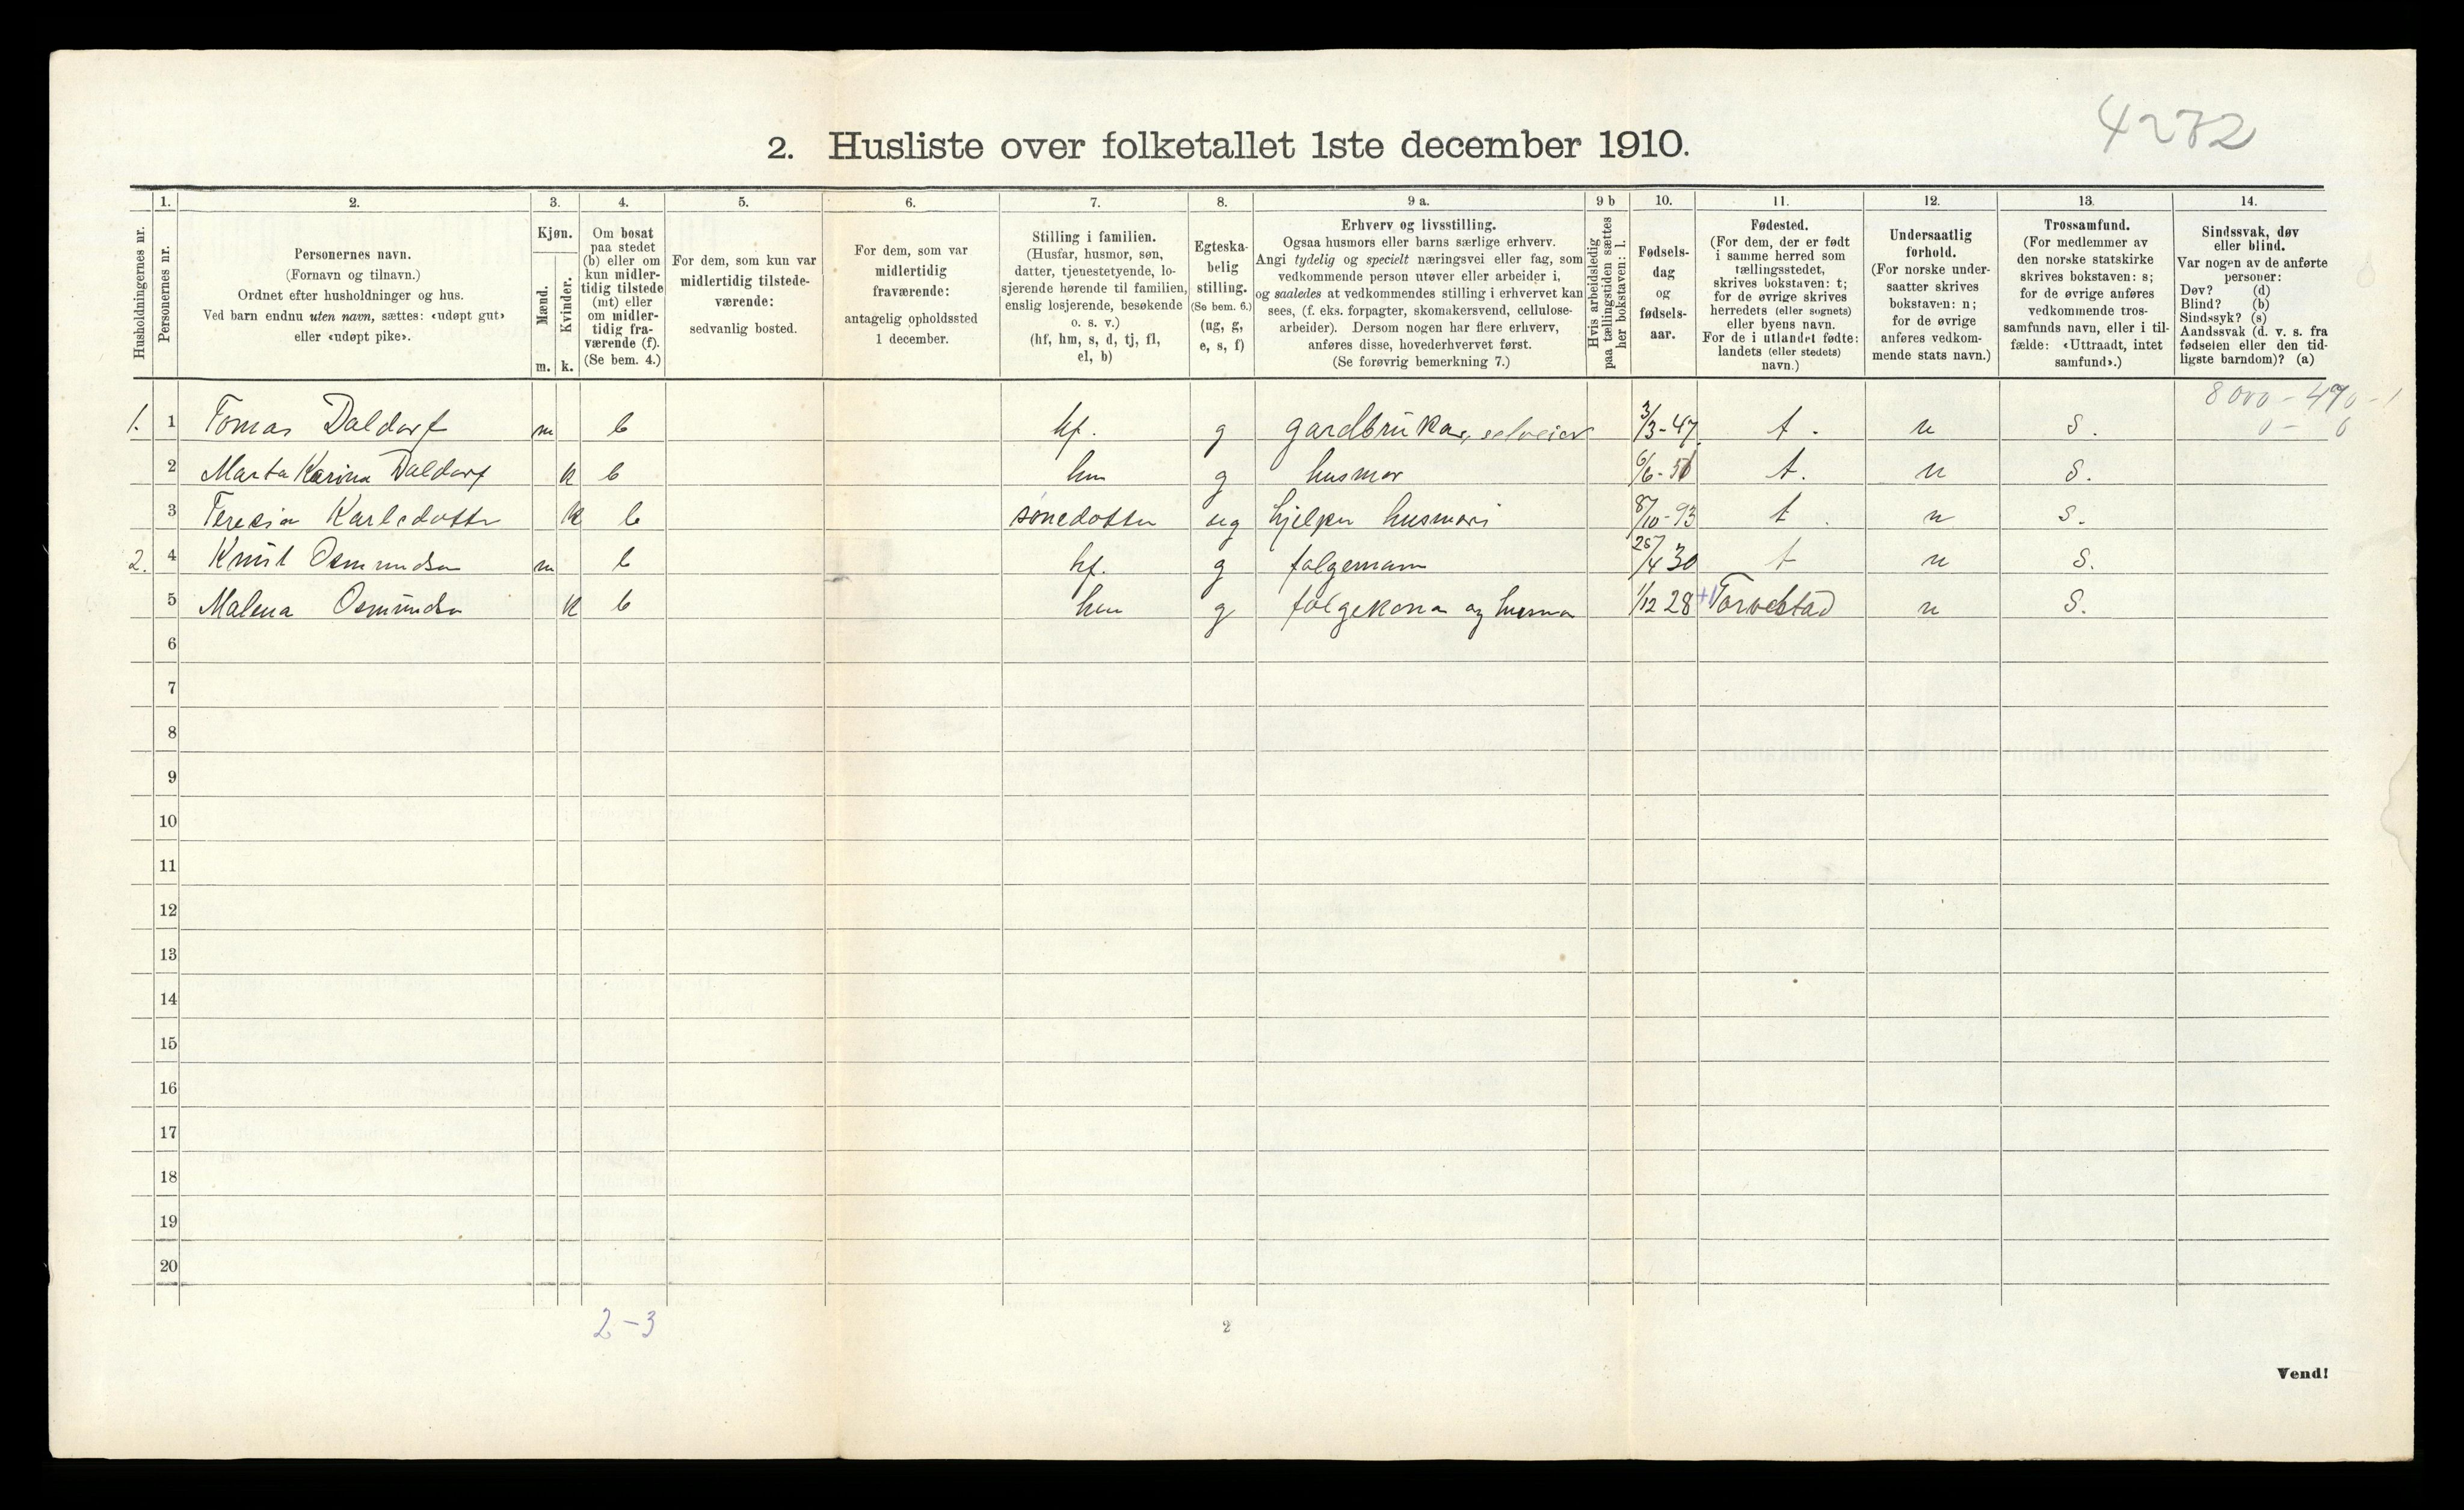 4272
2. Husliste over folketallet 1ste december 1910.
Husholdningernes nr.
1.
Personernes nr.
2.
Personernes navn.
(Fornavn og tilnavn.)
Ordnet efter husholdninger og hus.
Ved barn endnu uten navn, sættes: «udøpt gut»
eller «udøpt pike».
3.
Kjøn.
Mænd.
Kvinder.
m. k.
4.
Om bosat
paa stedet
(b) eller om
kun midler-
tidig tilstede
(mt) eller
om midler-
tidig fra-
værende (f).
(Se bem. 4.)
5.
For dem, som kun var
midlertidig tilstede-
værende:
sedvanlig bosted.
6.
For dem, som var
midlertidig
fraværende:
antagelig opholdssted
1 december.
7.
Stilling i familien.
(Husfar, husmor, søn,
datter, tjenestetyende, lo-
sjerende hørende til familien,
enslig losjerende, besøkende
o. s. v.)
(hf, hm, s, d, tj, fl,
el, b)
8.
Egteska-
belig
stilling.
(Se bem. 6.)
(ug, g,
e, s, f)
9 a.
Erhverv og livsstilling.
Ogsaa husmors eller barns særlige erhverv.
Angi tydelig og specielt næringsvei eller fag, som
vedkommende person utøver eller arbeider i,
og saaledes at vedkommendes stilling i erhvervet kan
sees, (f. eks. forpagter, skomakersvend, cellulose-
arbeider). Dersom nogen har flere erhverv,
anføres disse, hovederhvervet først.
(Se forøvrig bemerkning 7.)
9 b
Hvis arbeidsledig
paa tællingstiden sættes
her bokstaven: l.
10.
Fødsels-
dag
og
fødsels-
aar.
11.
Fødested.
(For dem, der er født
i samme herred som
tællingsstedet,
skrives bokstaven: t;
for de øvrige skrives
herredets (eller sognets)
eller byens navn.
For de i utlandet fødte:
landets (eller stedets)
navn.)
12.
Undersaatlig
forhold.
(For norske under-
saatter skrives
bokstaven: n;
for de øvrige
anføres vedkom-
mende stats navn.)
13.
Trossamfund.
(For medlemmer av
den norske statskirke
skrives bokstaven: s;
for de øvrige anføres
vedkommende tros-
samfunds navn, eller i til-
fælde: «Uttraadt, intet
samfund».)
14.
Sindssvak, døv
eller blind.
Var nogen av de anførte
personer:
Døv? (d)
Blind? (b)
Sindssyk? (s)
Aandssvak (d. v. s. fra
fødselen eller den tid-
ligste barndom)? (a)
8000 - 470 - 1
0 - 0
1. 1 Tomas Daldorf m b hf. g gardbrukar, selveier 3/3-47 t. n S.
2 Marta Karina Daldorf k b hm g husmor 6/6-51 t. n S.
3 Teresia Karlsdotter k b sonedotter ug hjelper husmori 8/10-93 t. n S.
2. 4 Knut Osmundsen m b hf. g folgemann 25/4 30 t n S.
5 Malena Osmundsen k b hm g folgekona og husmor 1/12 28 Torvestad n S.
6
7
8
9
10
11
12
13
14
15
16
17
18
19
20
2-3
2
Vend!